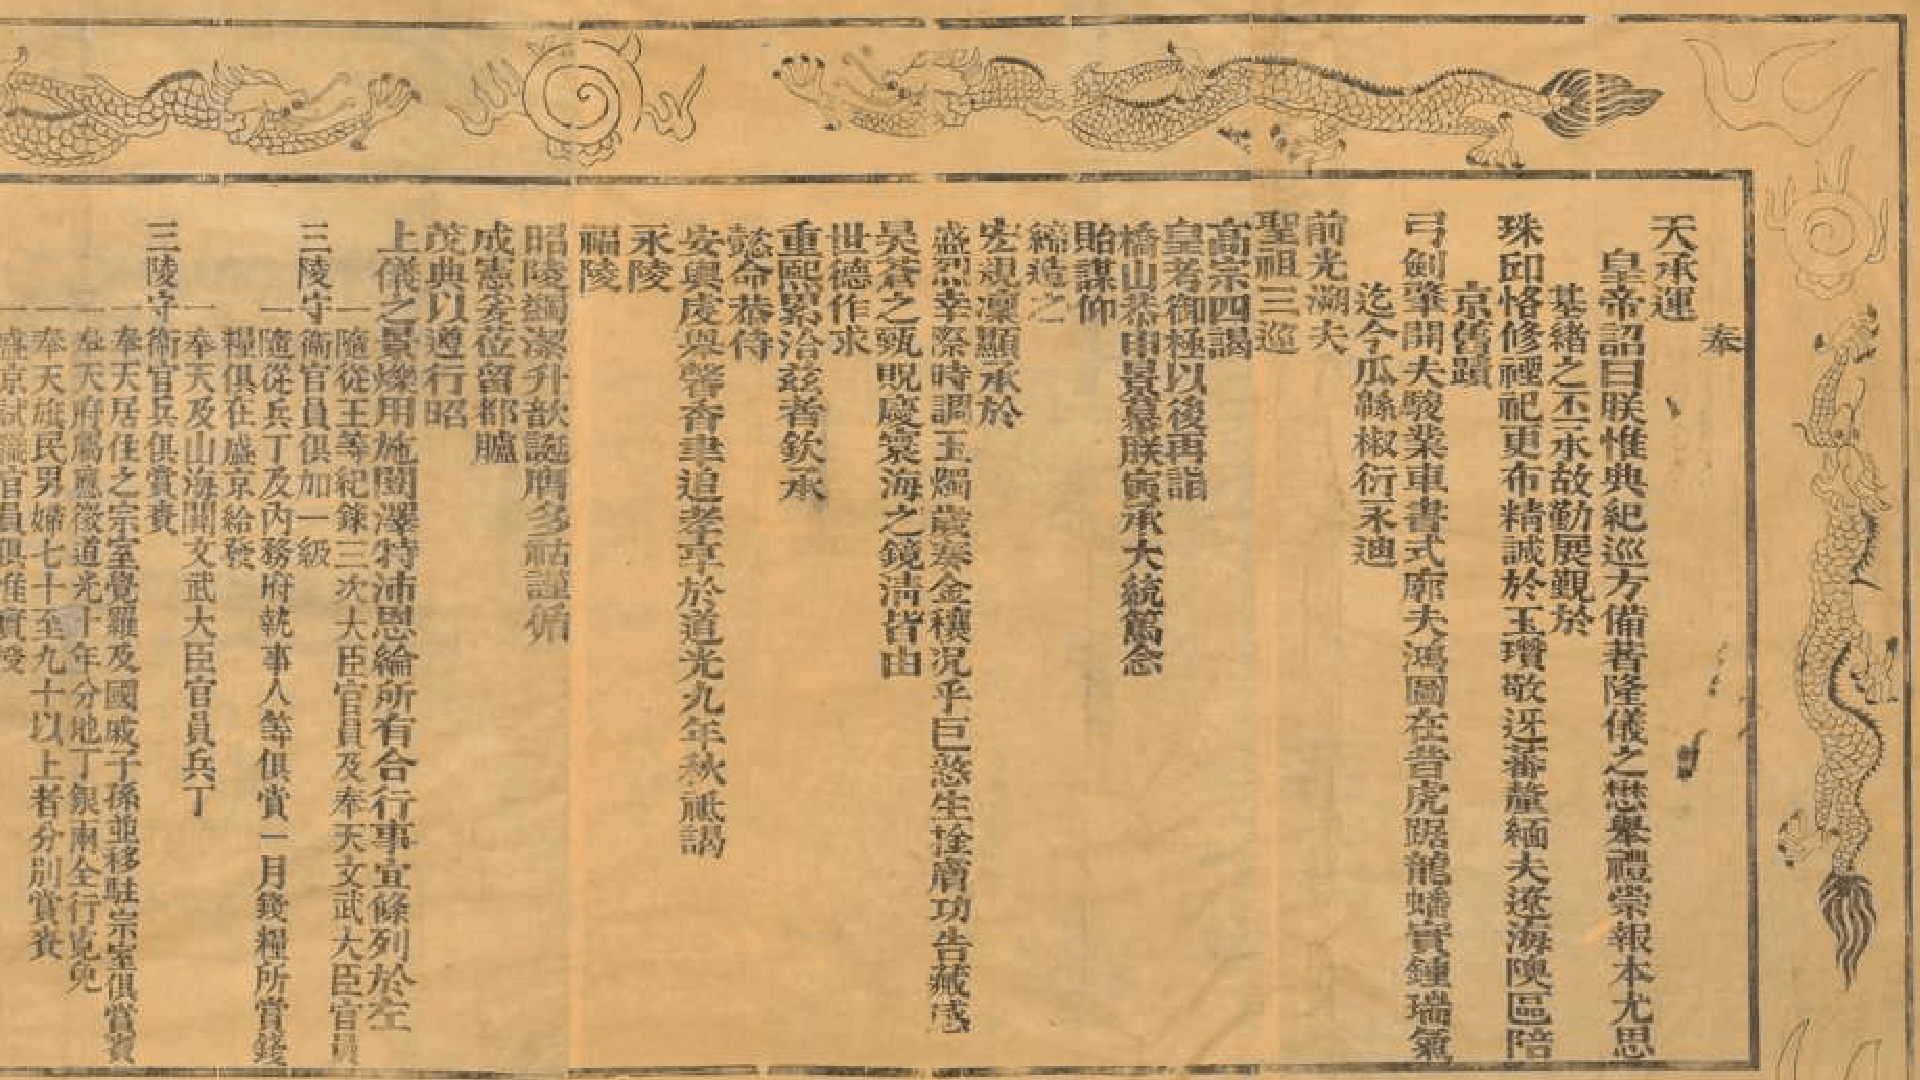 奉
天承運
皇帝詔曰朕惟典紀巡方備著隆儀之懋舉禮崇報本尤思
基緒之丕承故勤展覲於
珠邱恪修禋祀更布精誠於玉瓚敬迓蕃釐緬夫遼海陝區陪
京舊蹟
弓劍肇開夫駿業車書式廓夫鴻圖在昔虎踞龍蟠實鍾瑞氣
迄今瓜緜椒衍永迪
前光溯夫
聖祖三巡
高宗四謁
皇考御極以後再詣
橋山恭申景慕朕寅承大統篤念
貽謀仰
締造之
宏規凜顯承於
盛烈幸際時調玉燭歲奏金穰況乎巨憝生擒膚功告蕆感
昊蒼之甄貺慶寰海之鏡清皆由
世德作求
重熙累洽茲者欽承
懿命恭侍
安輿虔舉馨香聿追孝享於道光九年秋祗謁
永陵
福陵
昭陵蠲潔升歆誕膺多祜謹循
成憲爰蒞留都臚
茂典以遵行昭
上儀之景爍用施闓澤特沛恩綸所有合行事宜條列於左
一隨從王等紀錄三次大臣官員及奉天文武大臣官員
三陵守衞官員俱加一級
一隨從兵丁及內務府執事人等俱賞一月錢糧所賞錢
糧俱在盛京給發
一奉天及山海關文武大臣官員兵丁
三陵守衞官兵俱賞賚
一奉天居住之宗室覺羅及國戚子孫並移駐宗室俱賞賚
一奉天府屬應徵道光十年分地丁銀兩全行寬免
一奉天旗民男婦七十至九十以上者分別賞賚
一盛京試職官員俱准實授